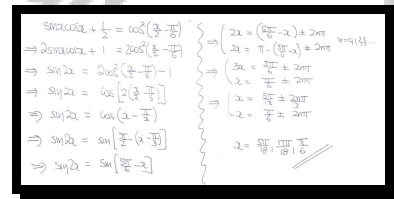 sinxcosx + 1/2 = cos²(x/2 - π/6)
⇒ 2sinxcosx + 1 = 2cos²(x/2 - π/6)
⇒ sin2x = 2cos²(x/2 - π/6) - 1
⇒ sin2x = cos[2(x/2 - π/6)]
⇒ sin2x = cos(x - π/3)
⇒ sin2x = sin[π/2 - (x - π/3)]
⇒ sin2x = sin[5π/6 - x]
⇒ { 2x = (5π/6 - x) ± 2nπ
2x = π - (5π/6 - x) ± 2nπ n=0,1,2,3...
⇒ { 3x = 5π/6 ± 2nπ
x = π/6 ± 2nπ
⇒ { x = 5π/18 ± 2nπ/3
x = π/6 ± 2nπ
x = 5π/18, 17π/18, π/6